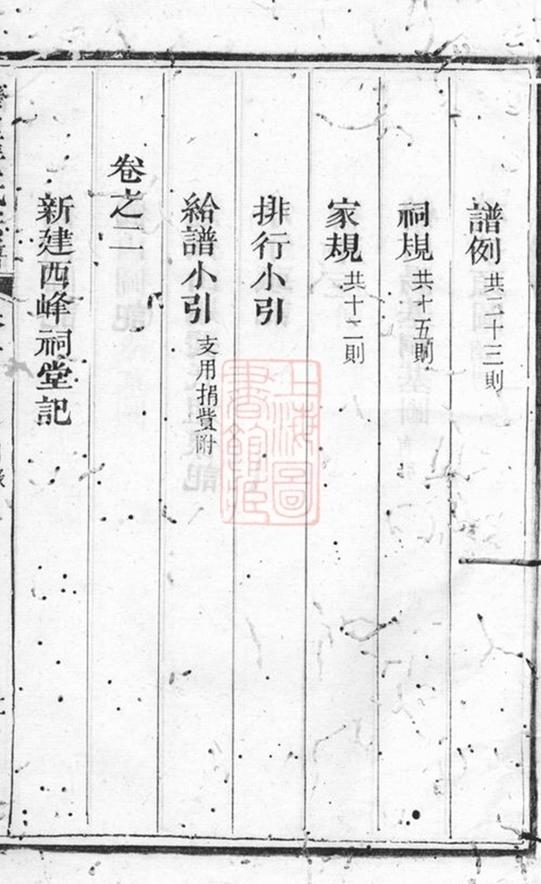 譜例共二十二則
祠規共十五則
家規共十二則
排行小引
給譜小引支用捐貲附
卷之二
新建西峰祠堂記
上海圖書館藏